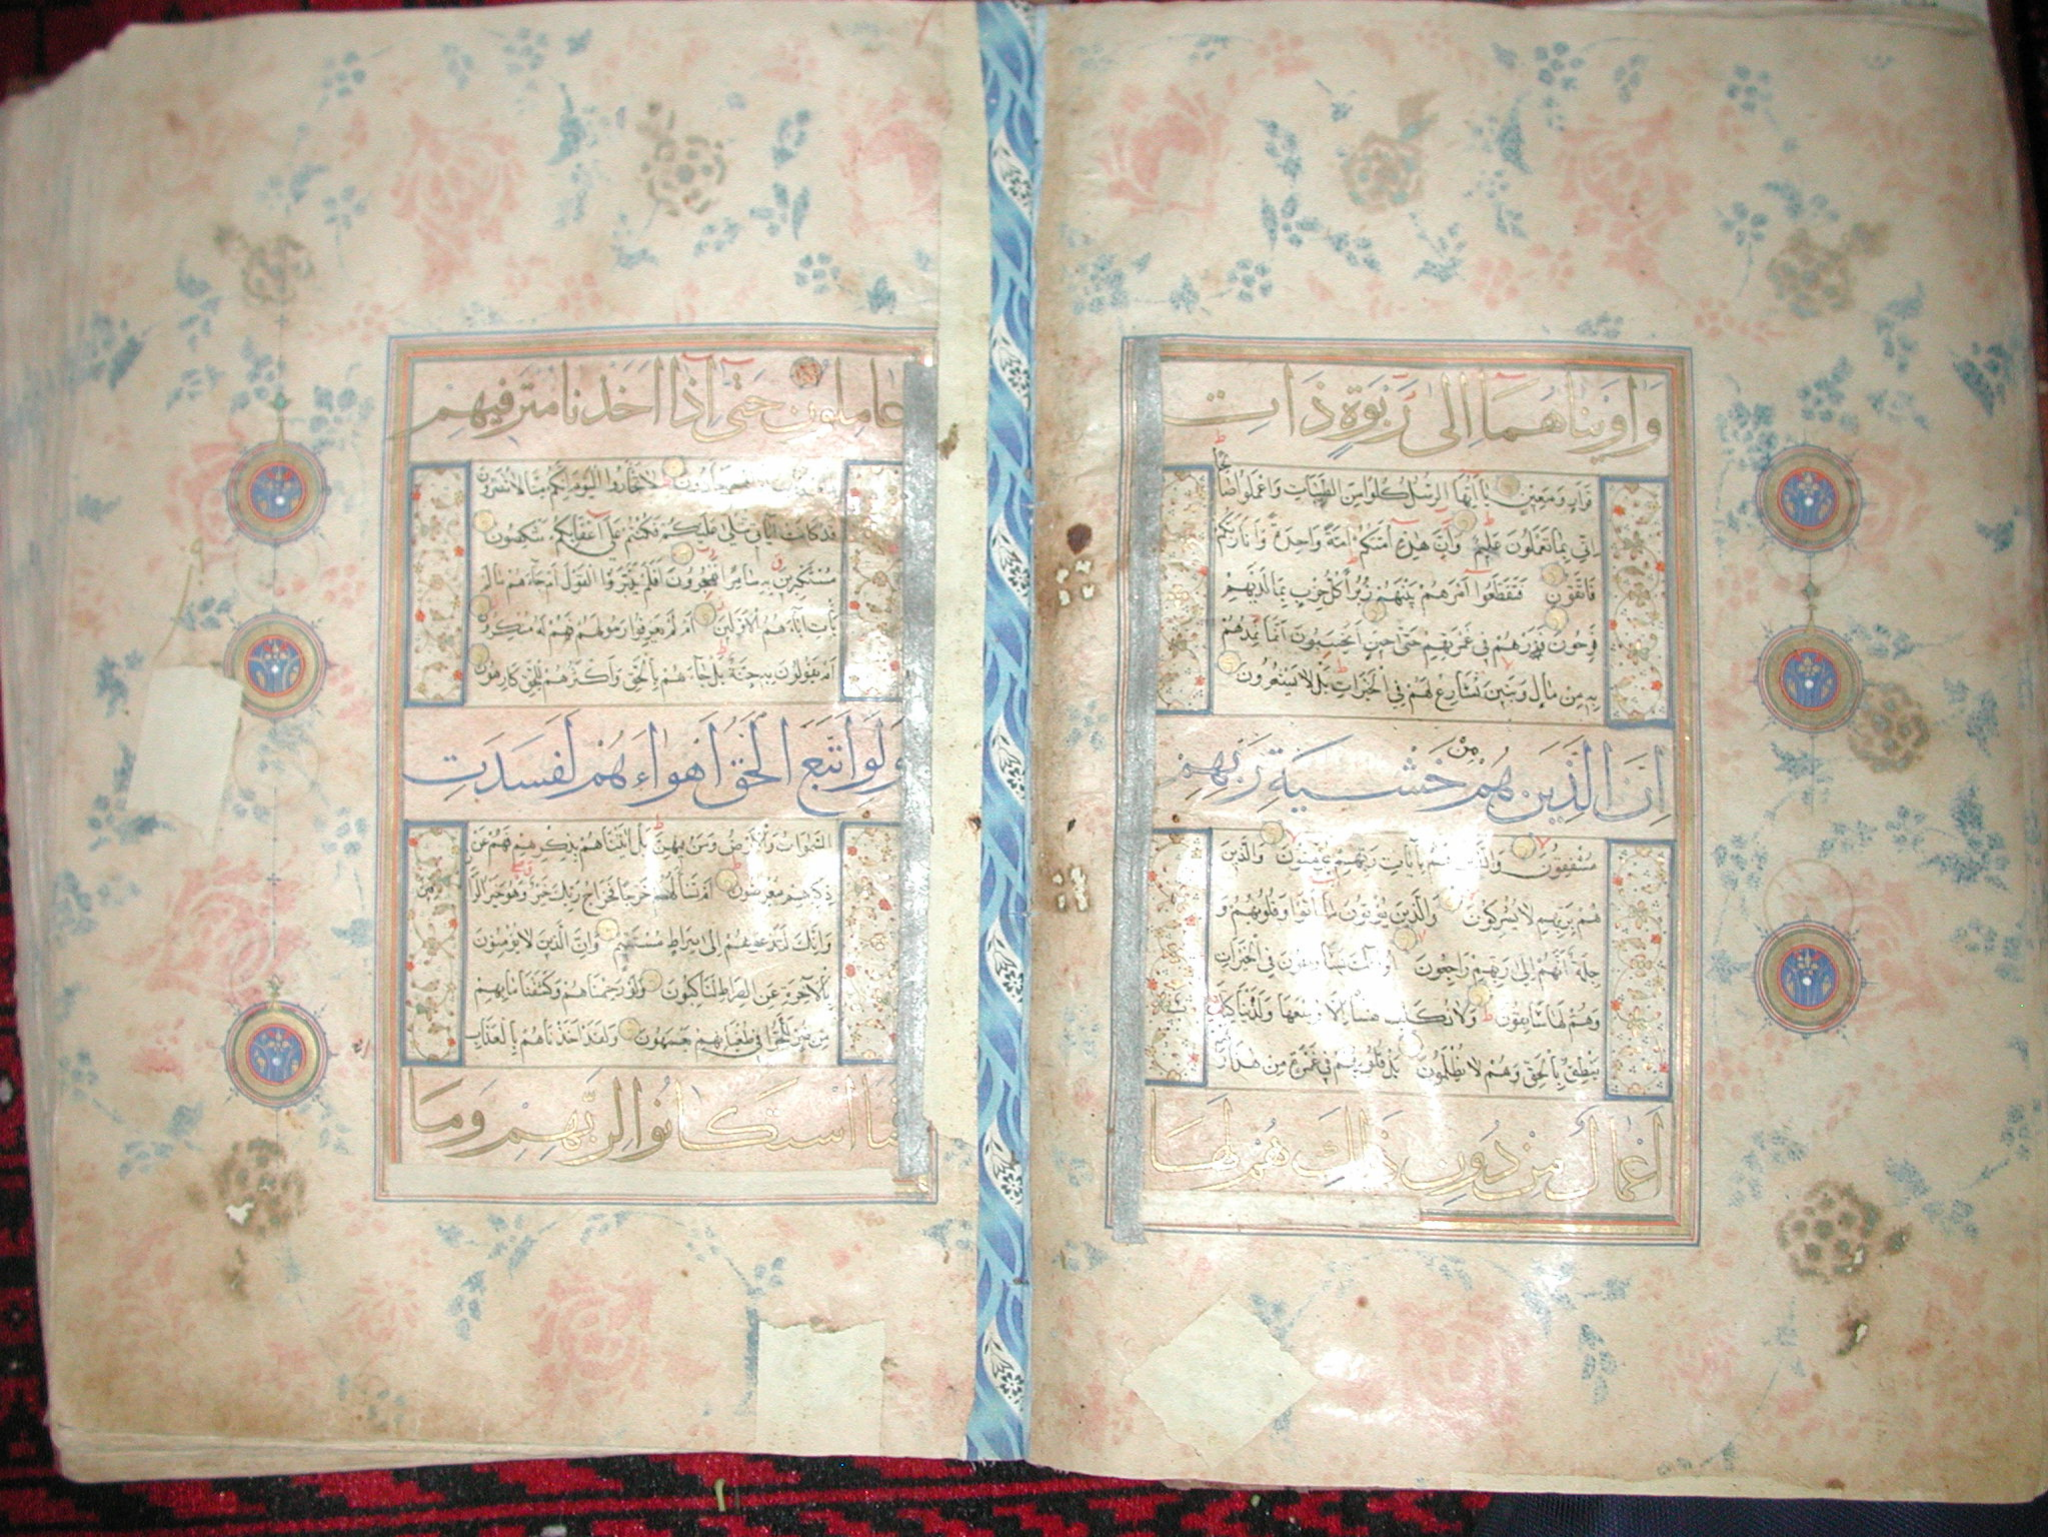 وَاٰوَيْنَاهُمَا اِلٰى رَبْوَةٍ ذَاتِ
قَرَارٍ وَمَعِينٍ يَا اَيُّهَا الرُّسُلُ كُلُوا مِنَ الطَّيِّبَاتِ وَاعْمَلُوا صَالِحًا
اِنِّى بِمَا تَعْمَلُونَ عَلِيمٌ وَاِنَّ هٰذِهِ اُمَّتُكُمْ اُمَّةً وَاحِدَةً وَاَنَا رَبُّكُمْ
فَاتَّقُونِ فَتَقَطَّعُوا اَمْرَهُمْ بَيْنَهُمْ زُبُرًا كُلُّ حِزْبٍ بِمَا لَدَيْهِمْ
فَرِحُونَ فَذَرْهُمْ فِى غَمْرَتِهِمْ حَتّٰى حِينٍ اَيَحْسَبُونَ اَنَّمَا نُمِدُّهُمْ
بِهِ مِنْ مَالٍ وَبَنِينَ نُسَارِعُ لَهُمْ فِى الْخَيْرَاتِ بَلْ لَا يَشْعُرُونَ
اِنَّ الَّذِينَ هُمْ مِنْ خَشْيَةِ رَبِّهِمْ
مُشْفِقُونَ وَالَّذِينَ هُمْ بِاٰيَاتِ رَبِّهِمْ يُؤْمِنُونَ وَالَّذِينَ
هُمْ بِرَبِّهِمْ لَا يُشْرِكُونَ وَالَّذِينَ يُؤْتُونَ مَا اٰتَوْا وَقُلُوبُهُمْ وَ
جِلَةٌ اَنَّهُمْ اِلٰى رَبِّهِمْ رَاجِعُونَ اُولٰئِكَ يُسَارِعُونَ فِى الْخَيْرَاتِ
وَهُمْ لَهَا سَابِقُونَ وَلَا نُكَلِّفُ نَفْسًا اِلَّا وُسْعَهَا وَلَدَيْنَا كِتَابٌ
يَنْطِقُ بِالْحَقِّ وَهُمْ لَا يُظْلَمُونَ بَلْ قُلُوبُهُمْ فِى غَمْرَةٍ مِنْ هٰذَا وَلَهُمْ
اَعْمَالٌ مِنْ دُونِ ذٰلِكَ هُمْ لَهَا
عَامِلُونَ حَتّٰى اِذَا اَخَذْنَا مُتْرَفِيهِمْ
بِالْعَذَابِ اِذَا هُمْ يَجْأَرُونَ لَا تَجْأَرُوا الْيَوْمَ اِنَّكُمْ مِنَّا لَا تُنْصَرُونَ
قَدْ كَانَتْ اٰيَاتِى تُتْلٰى عَلَيْكُمْ فَكُنْتُمْ عَلٰى اَعْقَابِكُمْ تَنْكِصُونَ
مُسْتَكْبِرِينَ بِهِ سَامِرًا تَهْجُرُونَ اَفَلَمْ يَدَّبَّرُوا الْقَوْلَ اَمْ جَاءَهُمْ مَا لَمْ
يَأْتِ اٰبَاءَهُمُ الْاَوَّلِينَ اَمْ لَمْ يَعْرِفُوا رَسُولَهُمْ فَهُمْ لَهُ مُنْكِرُونَ
اَمْ يَقُولُونَ بِهِ جِنَّةٌ بَلْ جَاءَهُمْ بِالْحَقِّ وَاَكْثَرُهُمْ لِلْحَقِّ كَارِهُونَ
وَلَوِ اتَّبَعَ الْحَقُّ اَهْوَاءَهُمْ لَفَسَدَتِ
السَّمٰوَاتُ وَالْاَرْضُ وَمَنْ فِيهِنَّ بَلْ اَتَيْنَاهُمْ بِذِكْرِهِمْ فَهُمْ عَنْ
ذِكْرِهِمْ مُعْرِضُونَ اَمْ تَسْأَلُهُمْ خَرْجًا فَخَرَاجُ رَبِّكَ خَيْرٌ وَهُوَ خَيْرُ الرَّازِقِينَ
وَاِنَّكَ لَتَدْعُوهُمْ اِلٰى صِرَاطٍ مُسْتَقِيمٍ وَاِنَّ الَّذِينَ لَا يُؤْمِنُونَ
بِالْاٰخِرَةِ عَنِ الصِّرَاطِ لَنَاكِبُونَ وَلَوْ رَحِمْنَاهُمْ وَكَشَفْنَا مَا بِهِمْ
مِنْ ضُرٍّ لَلَجُّوا فِى طُغْيَانِهِمْ يَعْمَهُونَ وَلَقَدْ اَخَذْنَاهُمْ بِالْعَذَابِ
فَمَا اسْتَكَانُوا لِرَبِّهِمْ وَمَا